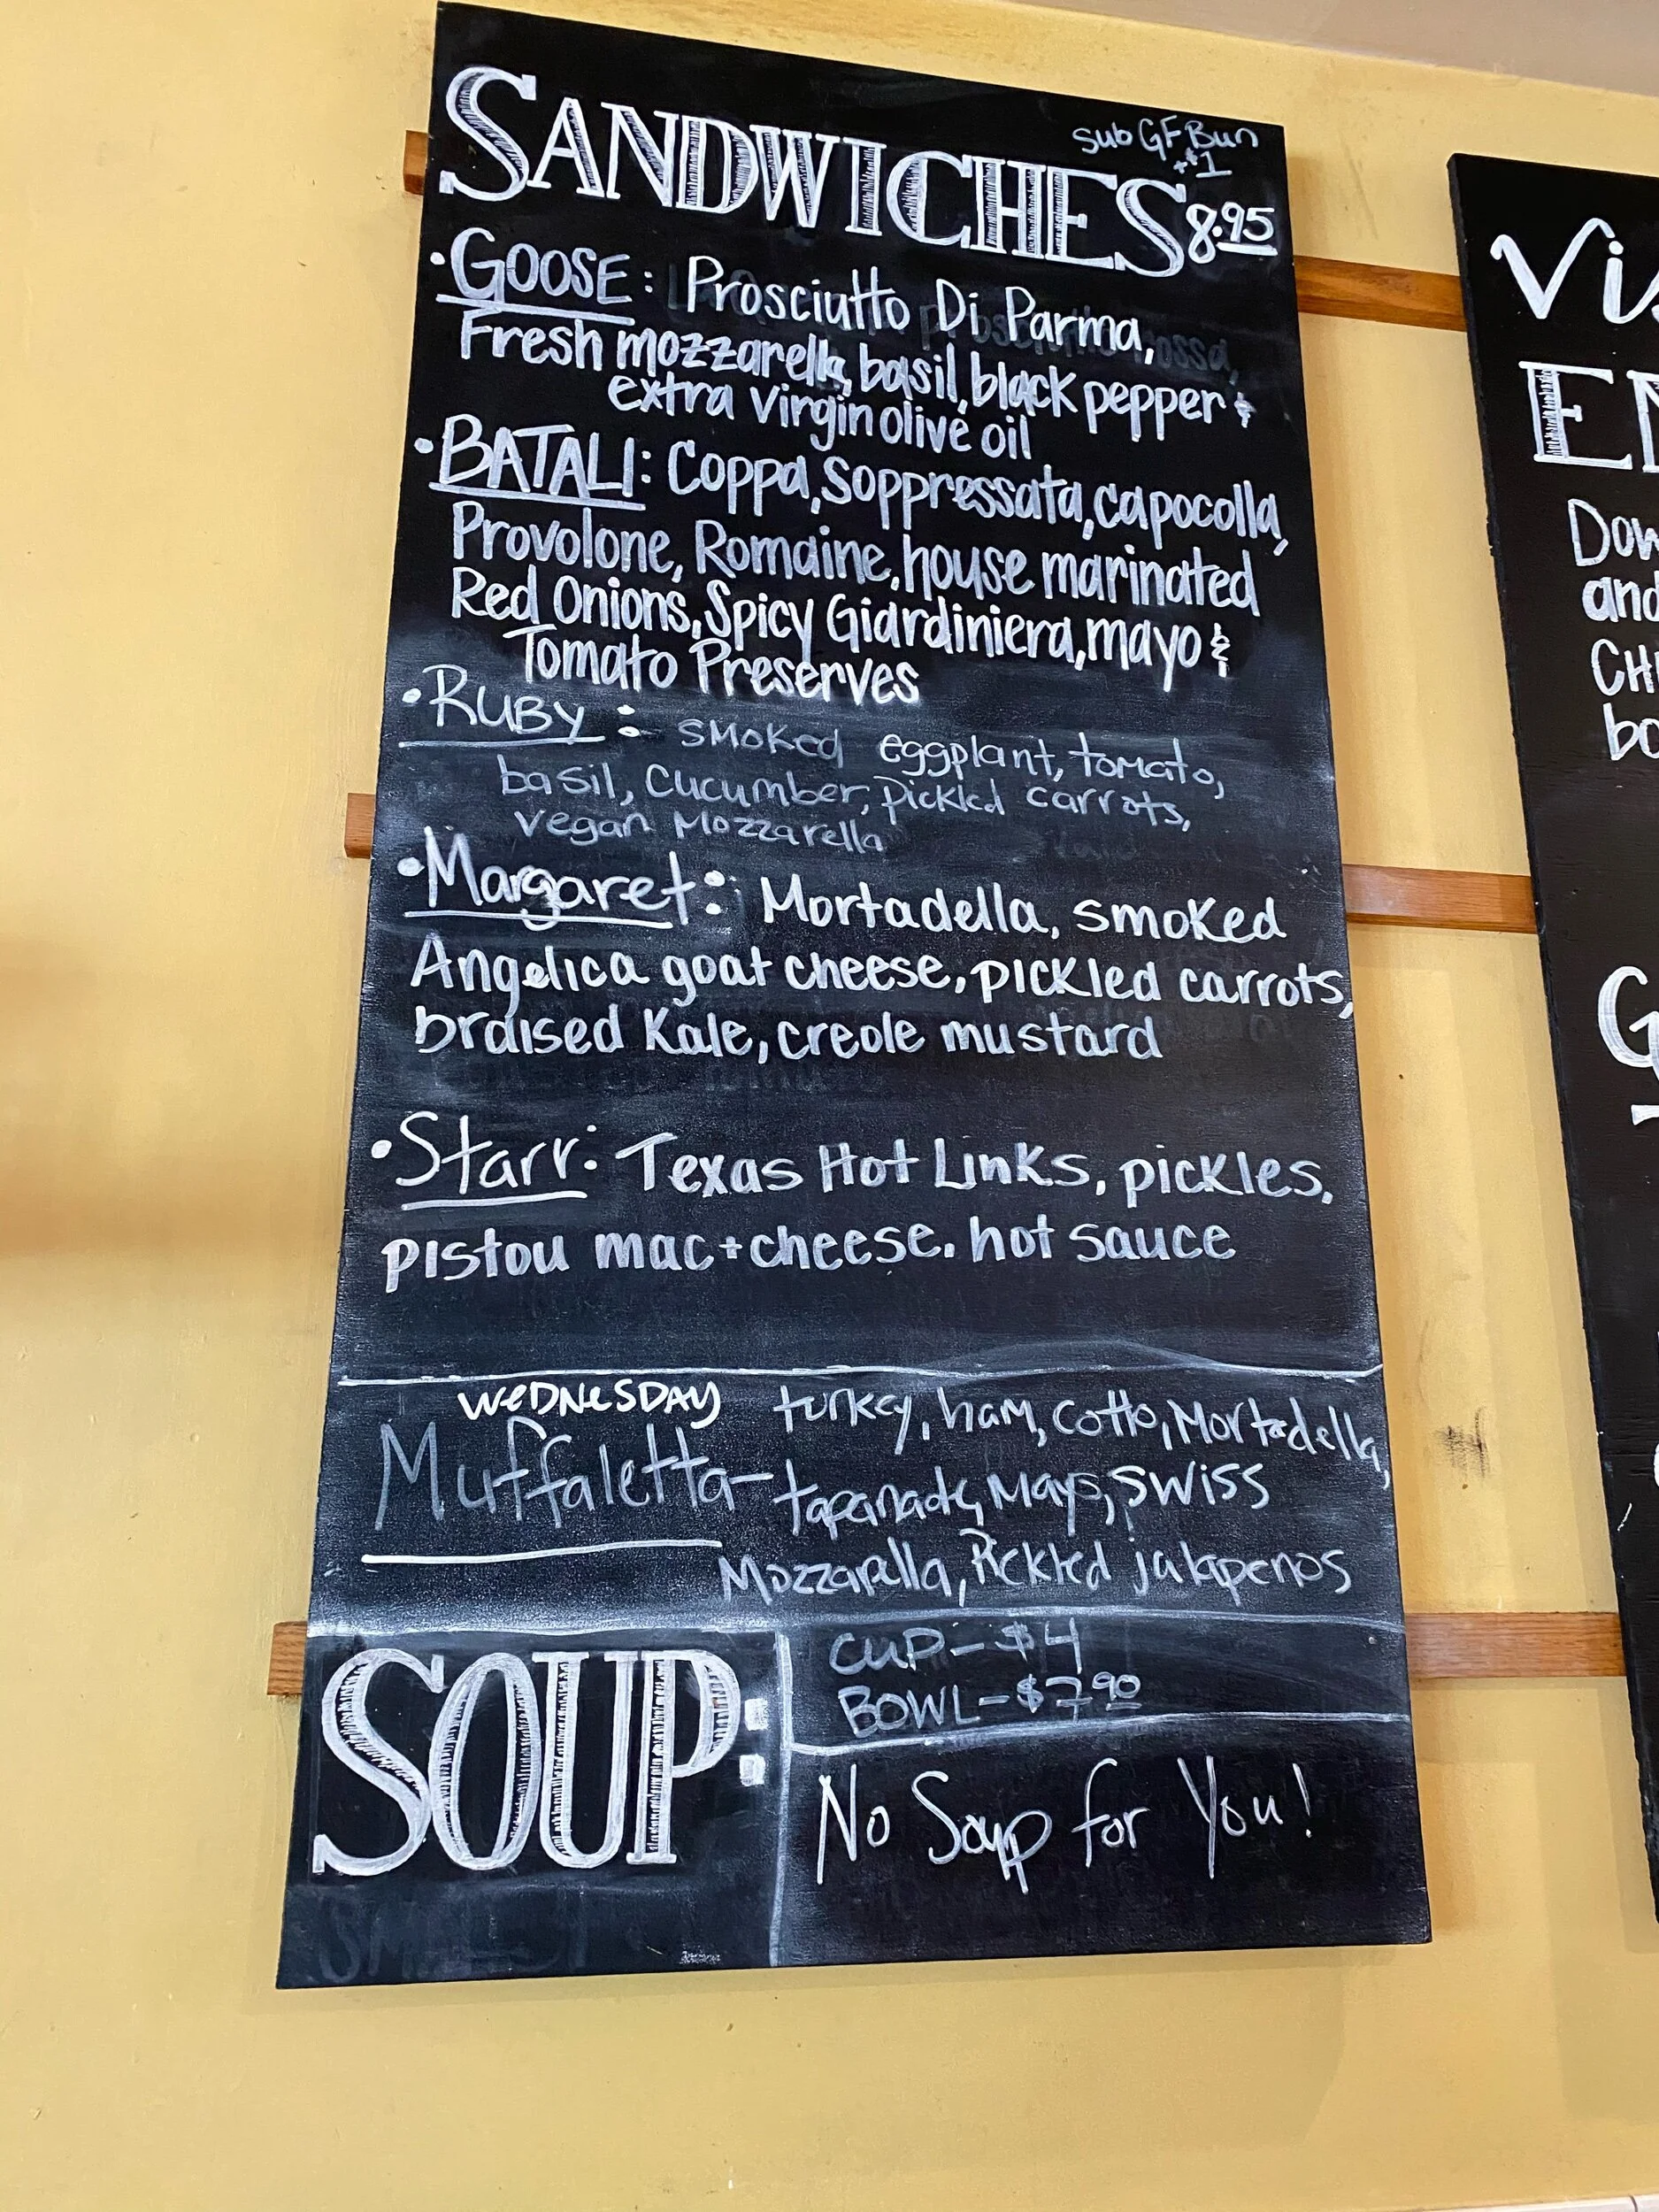 sub GF Bun
+$1
SANDWICHES 8.95
• GOOSE: Prosciutto Di Parma,
Fresh mozzarella, basil, black pepper &
extra virgin olive oil
• BATALI: Coppa, Soppressata, capocolla,
Provolone, Romaine, house marinated
Red Onions, Spicy Giardiniera, mayo &
Tomato Preserves
• RUBY: smoked eggplant, tomato,
basil, cucumber, pickled carrots,
vegan mozzarella
• Margaret: Mortadella, smoked
Angelica goat cheese, pickled carrots,
braised Kale, creole mustard
• Starr: Texas Hot Links, pickles,
pistou mac+cheese, hot sauce
WEDNESDAY
Muffaletta- turkey, ham, cotto, Mortadella,
tapanade, Mayo, swiss
Mozzarella, Pickled jalapenos
SOUP:
CUP-$4
BOWL-$7.90
No Soup for You!
Vis
EN
Dow
and
CHE
bo
G